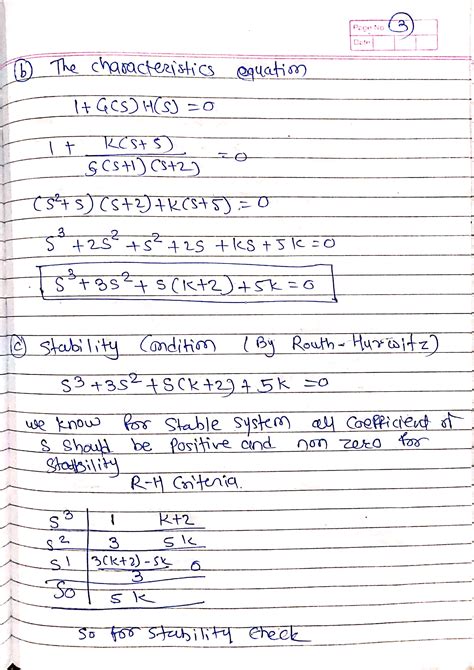 Page No. 3
Date
(b) The characteristics equation
1 + G(S) H(S) = 0
1 + K(S+5) / S(S+1)(S+2) = 0
(S²+S)(S+2)+K(S+5) = 0
S³ + 2S² + S² + 2S + KS + 5K = 0
S³ + 3S² + S(K+2) + 5K = 0
(c) Stability Condition (By Routh-Hurwitz)
S³ + 3S² + S(K+2) + 5K = 0
we know for stable system all coefficient of
S should be positive and non zero for
Stability
R-H Criteria.
S³ | 1 K+2
S² | 3 5K
S1 | 3(K+2)-5K / 3 0
S0 | 5K
So for stability check